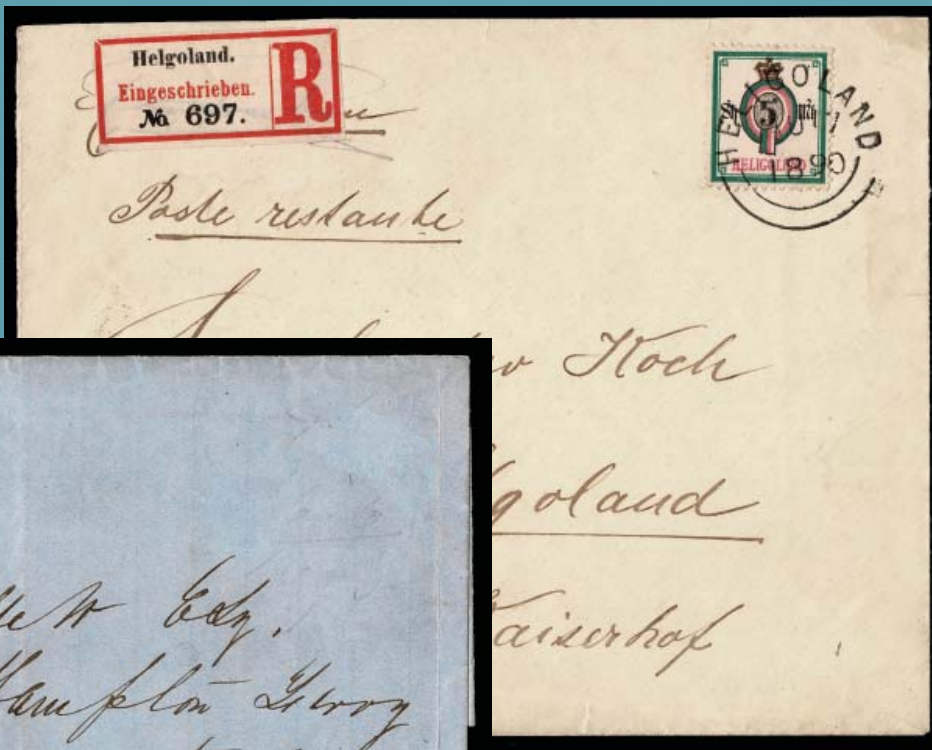 Helgoland.
Eingeschrieben.
№ 697.
R
HELIGOLAND
1890
5
HELIGOLAND
Poste restante
Koch
goland
Kaiserhof
Esq.
Hampton